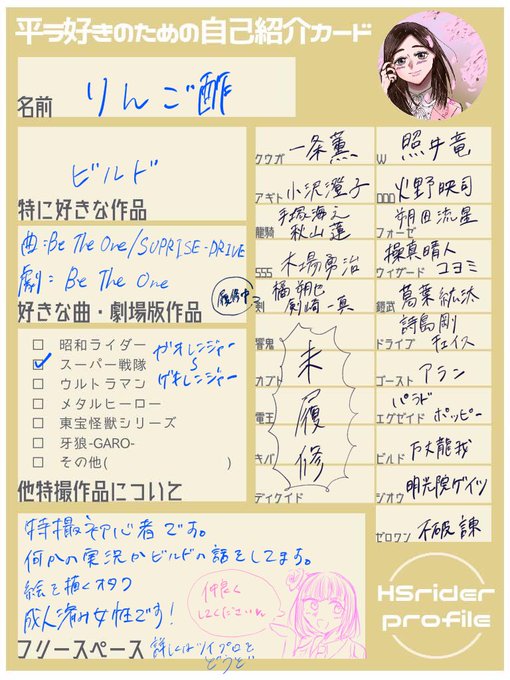 平ラ好きのための自己紹介カード
名前
りんご酢
ビルド
特に好きな作品
曲:Be The One/SUPRISE-DRIVE
劇:Be The One
好きな曲・劇場版作品
昭和ライダー
スーパー戦隊
ウルトラマン
メタルヒーロー
東宝怪獣シリーズ
牙狼-GARO-
その他( )
ガオレンジャー
〜
ゲキレンジャー
他特撮作品について
特撮初心者です。
何かの実況かビルドの話をしてます。
絵を描くオタク
成人済み女性です!
詳しくはツイプロを
どうぞ
フリースペース
仲良く
してくださいね
クウガ 一条薫
アギト 小沢澄子
龍騎 手塚海之
秋山蓮
555 木場勇治
履修中
剣 橘朔也
剣崎一真
響鬼
カブト
電王
キバ
ディケイド
未
履
修
W 照井竜
OOO 火野映司
フォーゼ 朔田流星
ウィザード 操真晴人
コヨミ
鎧武 葛葉紘汰
ドライブ 詩島剛
チェイス
ゴースト アラン
エグゼイド パラド
ポッピー
ビルド 万丈龍我
ジオウ 明光院ゲイツ
ゼロワン 不破諫
HSrider
profile